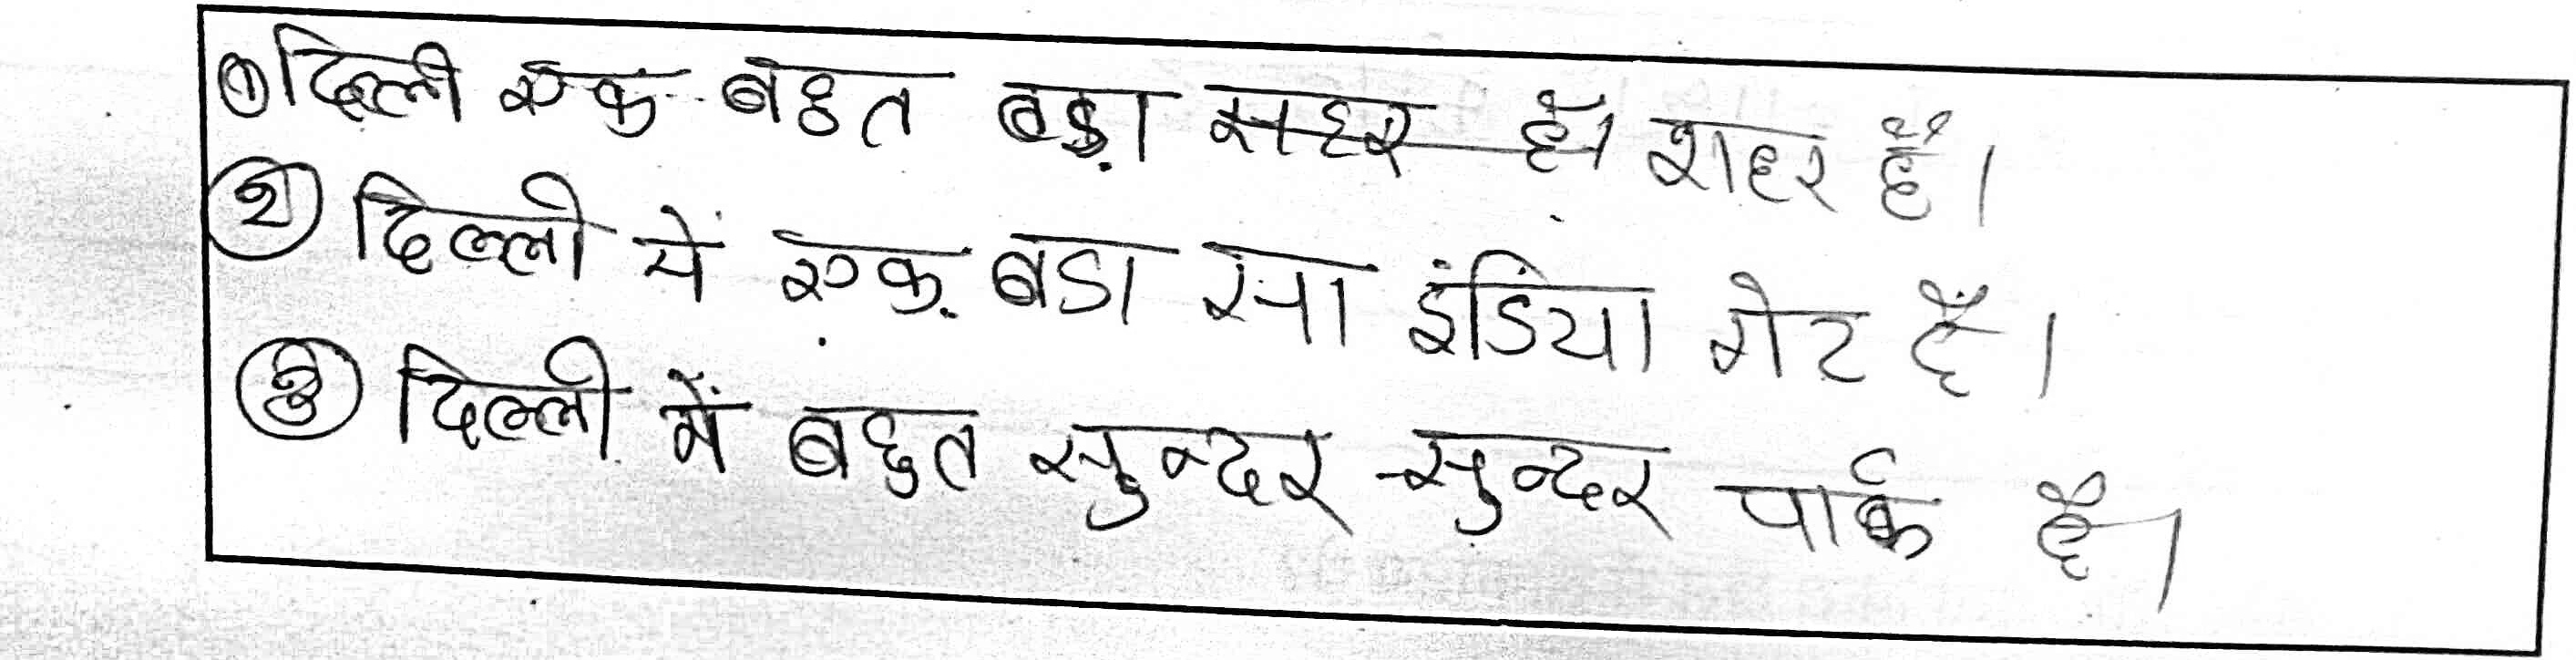 ① दिल्ली एक बहुत बड़ा सहर है। शहर है।
② दिल्ली में एक बडा सा इंडिया गेट है।
③ दिल्ली में बहुत सुन्दर सुन्दर पार्क है।